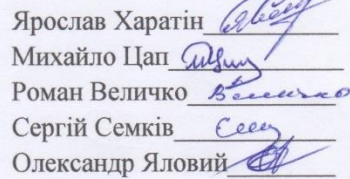 Ярослав Харатін
Михайло Цап
Роман Величко Величко
Сергій Семків
Олександр Яловий